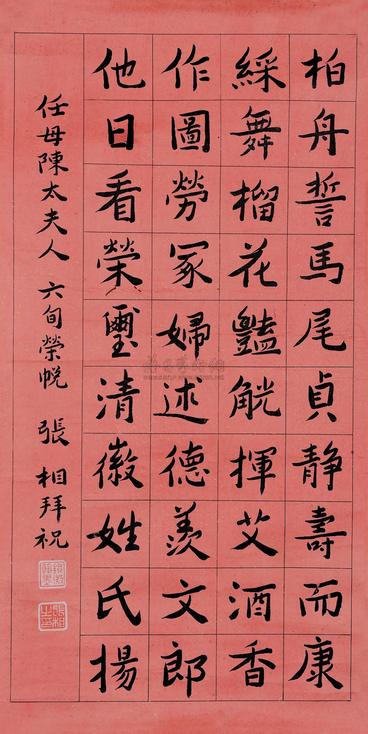 柏舟誓馬尾貞静壽而康
綵舞榴花豔觥揮艾酒香
作圖勞冢婦述德羨文郎
他日看榮璽清徽姓氏揚
任母陳太夫人 六旬榮帨 張相拜祝
張相之印